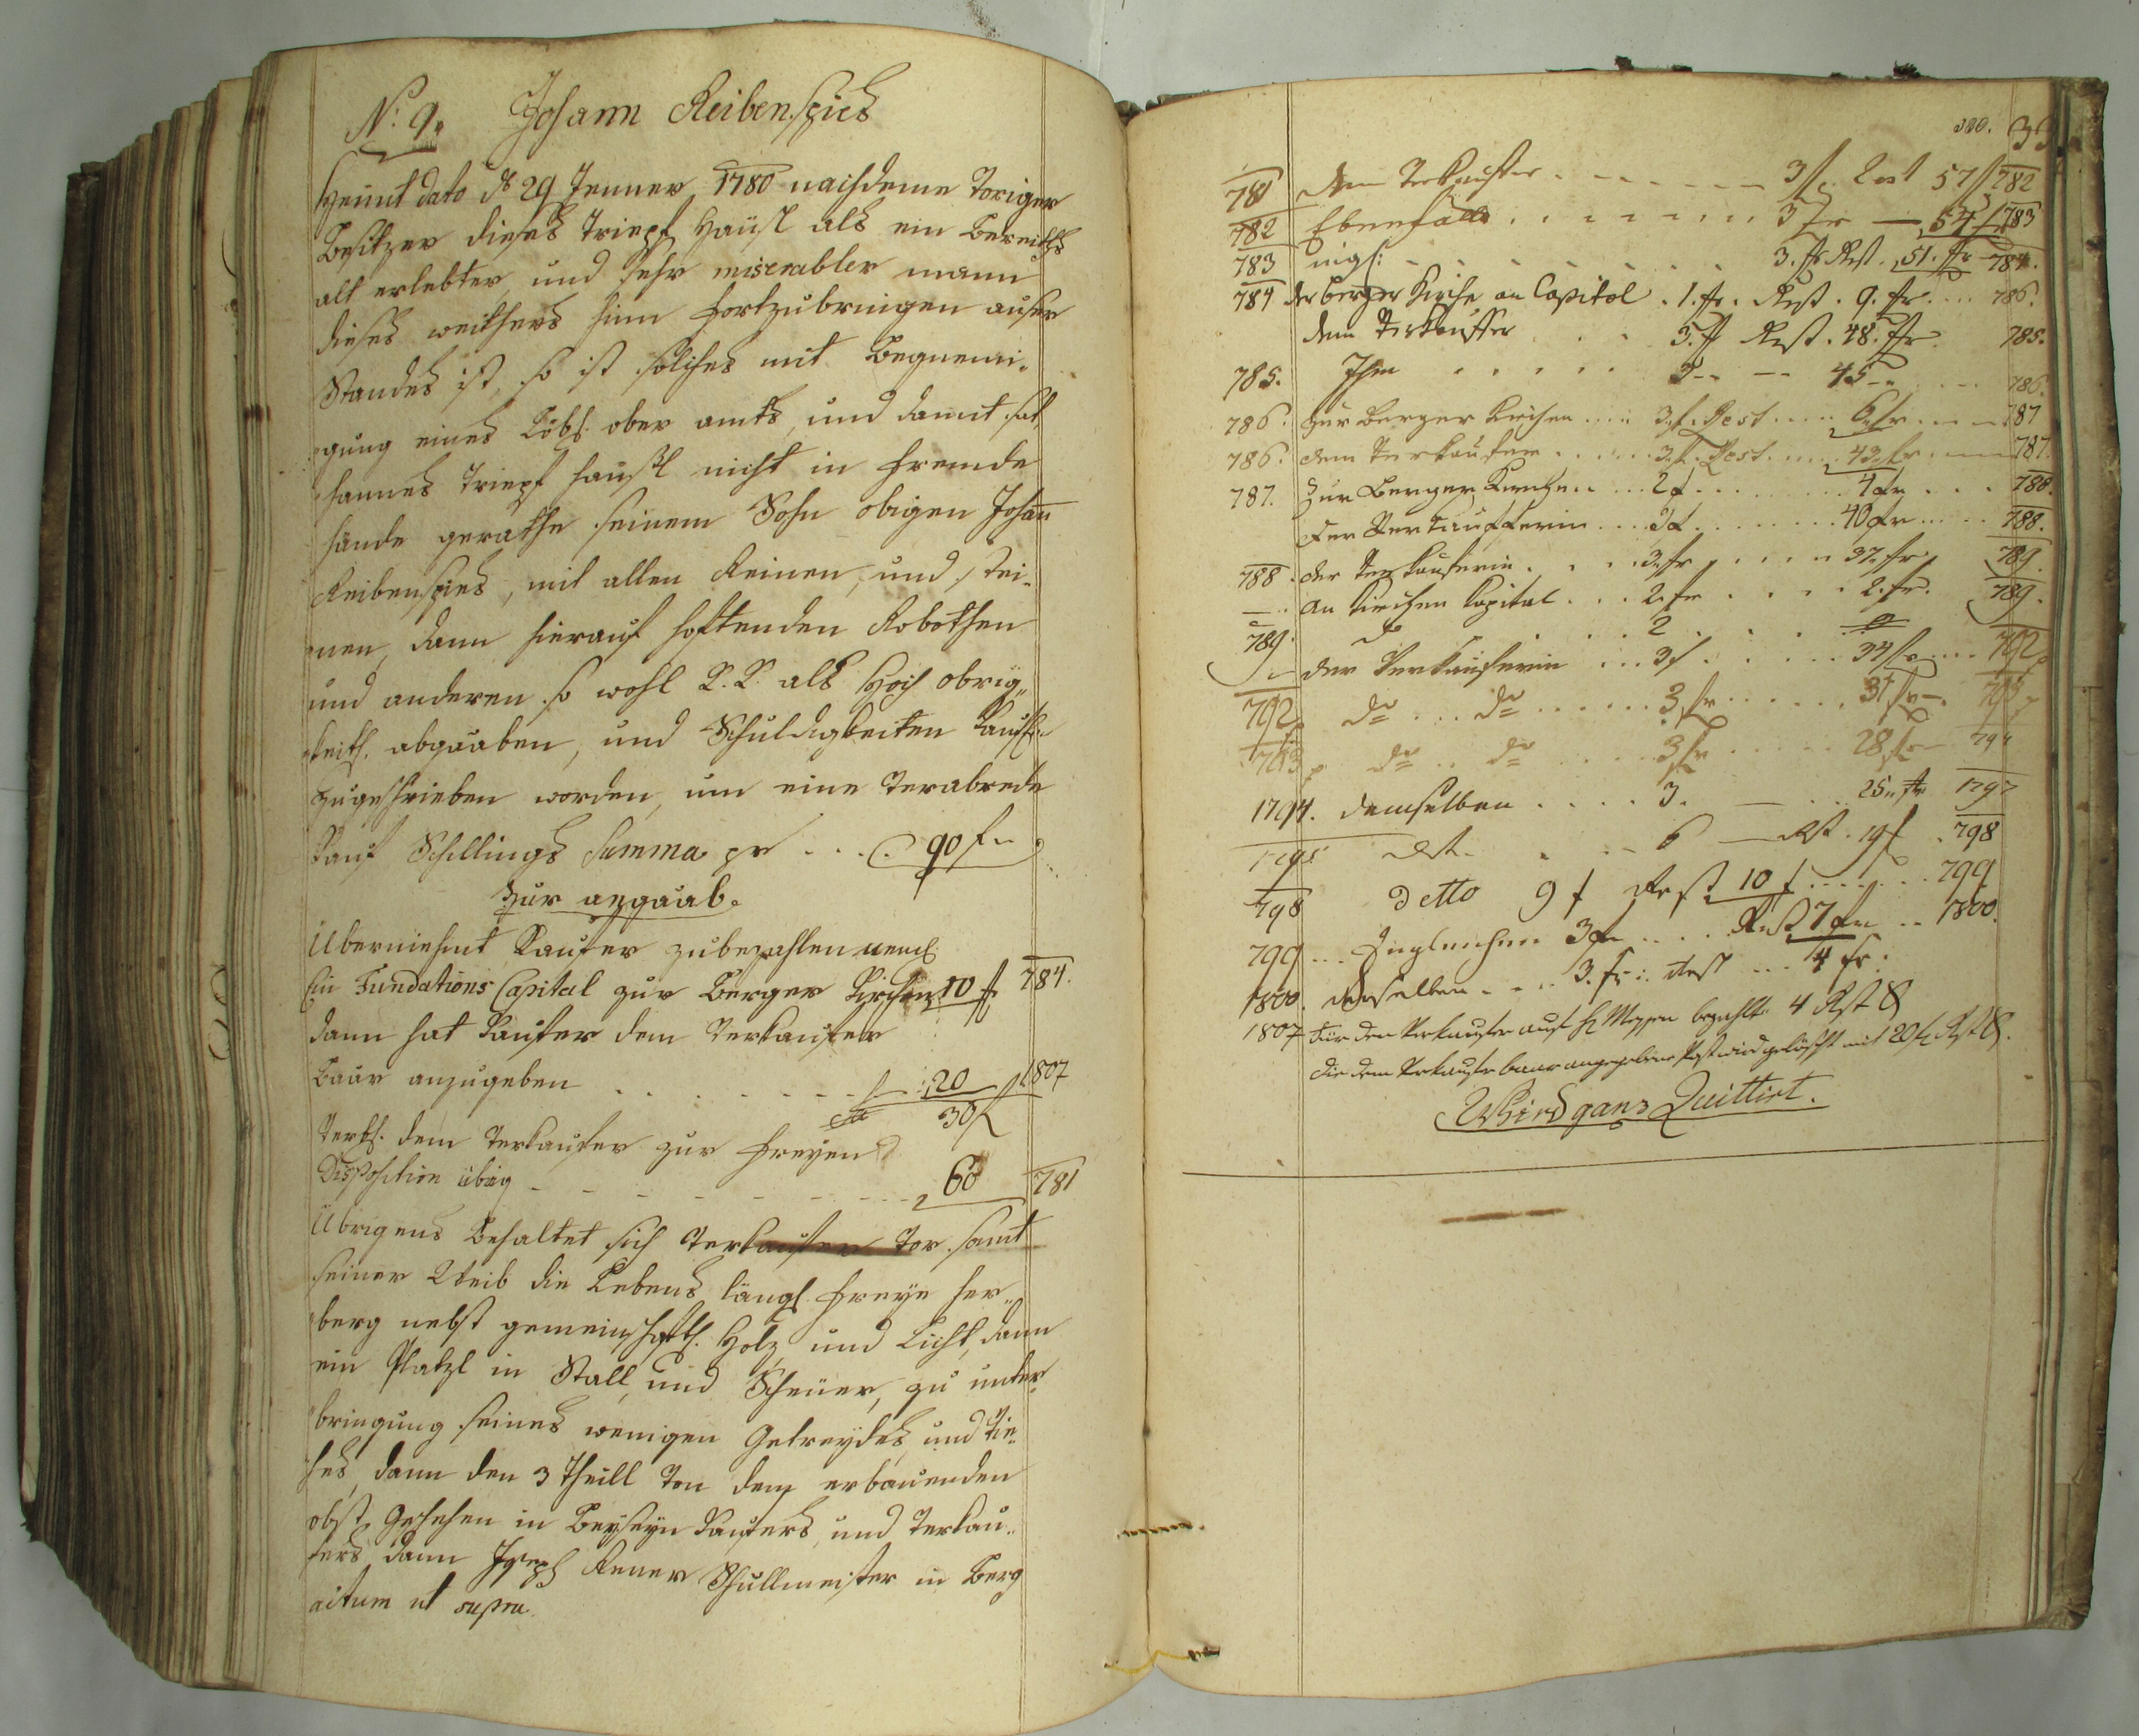 N: 9. Johann Reibenspies
Heunt dato d 29 Jenner 1780 nachdeme voriger
Besitzer dieses Häusl als ein bereiths
alt erlebter und sehr miserabler mann
dieses weithers hinn fortzubringen auser
Standes ist, so ist solches mit Begnemi-
gung eines Löbl: ober amts, und damit
hannes hausl nicht in fremde
hände gerathe seinem Sohn obigen Johann
Reibenspies, mit allen Reinen, und Stei-
nen, dann hierauf haftenden Robothen
und anderen so wohl K. K. als Hoch obrig„
keitl. abgaaben, und Schuldigkeiten Kaufl.
zugeschrieben worden, um eine verabrede
Kauf Schillings Summa pr . . . 90 f
Zur angaab.
Übernehmt Kaufer zubezahlen
Ein Fundations Capital zur Berger Kirchen 10 f 784.
dann hat Kaufer dem Verkaufer
Baar anzugeben . . . . . . 20 1807
30 f
Verbl. dem Verkaufer zur freyen
Disposition übrig - - - - - - 60 781
Übrigens behaltet sich Verkaufer vor samt
seiner Weib die Lebens längl. freye her„
berg nebst gemeinschaftl. Holz und Licht, dann
ein Platzl in Stall und Scheuer, zu unter
bringung seines wenigen Getreydes und Vie-
hes, dann den 3 Theill von dem erbauenden
obst, Geschehen in Beyseyn Kaufers, und Verkau„
fers dann Joseph Renner Schullmeister in Berg
actum ut supra.
781 dem Verkaufer . - - - - - 3 f. Rest 57 f 782
782 Ebenfalls . . . . . . . 3 fr — 54 f 783
783 ingl: - - - - - - 3. fr Rest . 51. fr 784.
784 der Berger Kirche an Capital . 1. fr. Rest . 9. fr. . . . 786.
dem Verkauffer . . . 3. fr Rest . 48. fr 785.
785. Ihm . . . . . 3 -- -- 45 -- 786.
786. zur Berger Kirchen . . . . 3 f. Rest . . . . 6 fr --- 787
786. dem Verkaufer . . . . . 3 f. Rest . . . . 43 fr --- 787.
787. Zur Berger Kirchen . . . 2 f . . . . . . . 4 fr . . . 788.
Der Verkaufferin . . . . 3 f . . . . . . . 40 fr . . . 788.
788. der Verkauferin . . . 3 fr . . . . 37 fr 789.
— an Kirchen Capital . . . 2. fr . . . . 2. fr. 789.
789. do . . . 2 . . . 0
— der Verkauferin . . . 3 f . . . . . 34 fr . . . 792
792 do . . . do . . . . . . 3 fr . . . . . . 31 fr -- 793
793 do . . do . . . . . 3 fr . . . . . 28 fr — 794
1794. demselben . . . . 3. — . . . 25 fr 1797
1795 . . - 6 — Rst. 19 f . 798
798 detto 9 f Rest 10 f . . . . . . 799
799 . . . Zugleichen 3 fr . . . . Rest 7 fr . . 1800.
1800. denselben - . . . 3. fr: Rest . . . 4 fr:
1807 Für den Verkaufer auf Hl Messen bezahlt 4 Rst
die dem Verkaufer baar angegebene Post wird gelöscht mit 20 f Rst
Wird ganz Quittirt.